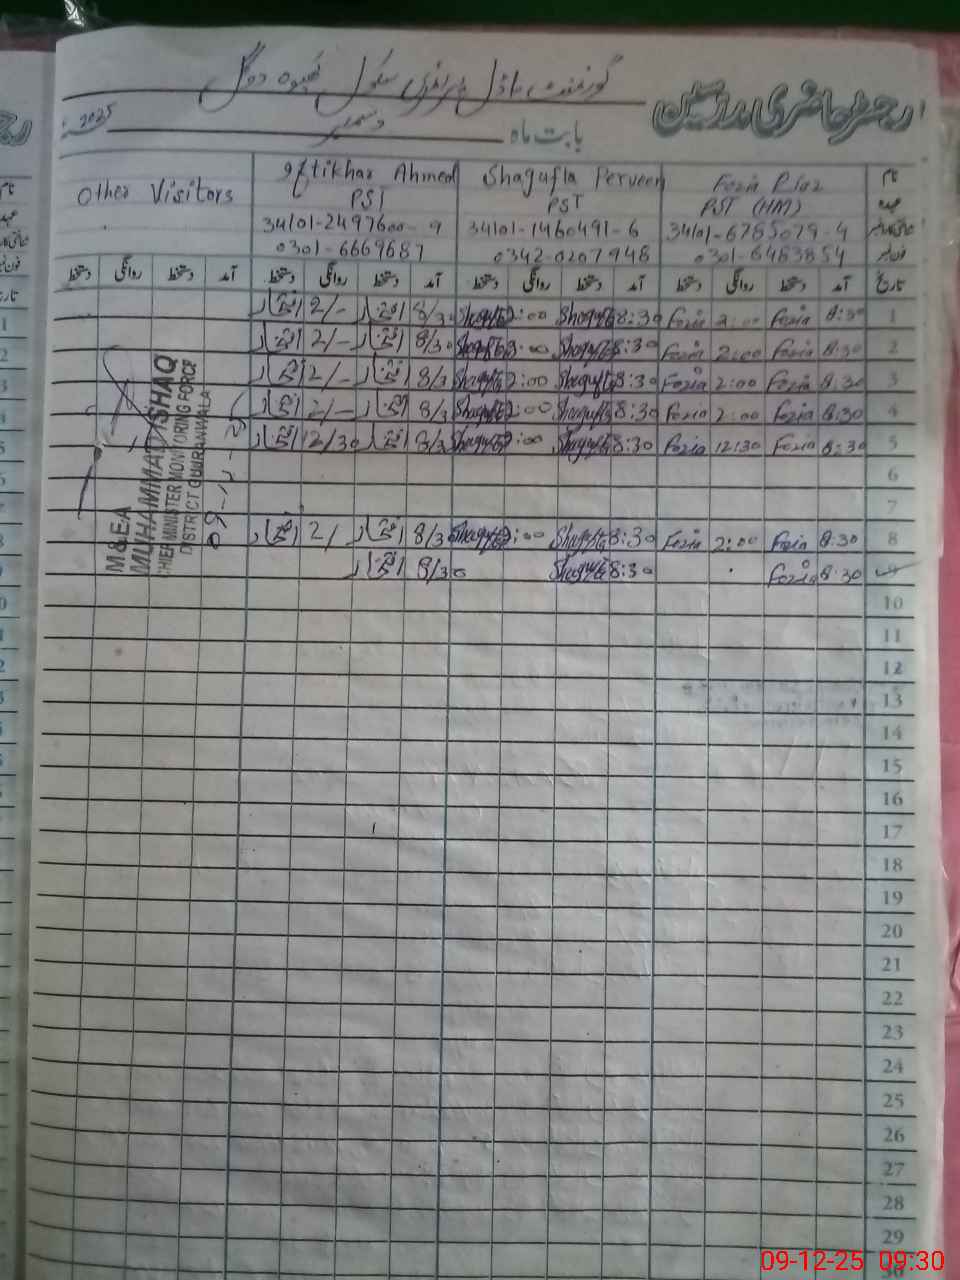 گورنمنٹ ماڈل پرائمری سکول
رجسٹر حاضری مدرسین
بابت ماہ دسمبر 2025
نام Fozia Riaz Shagufta Perveen Iftikhar Ahmed Other Visitors
عہدہ PST (HM) PST PST
شناختی کارڈ نمبر 34101-6785079-4 34101-1460491-6 34101-2497600-9
فون نمبر 0301-6483854 0342-0207948 0301-6669687
تاریخ آمد دستخط روانگی دستخط آمد دستخط روانگی دستخط آمد دستخط روانگی دستخط آمد دستخط روانگی دستخط
1 8:30 Fozia 2:00 Fozia 8:30 Shagufta 2:00 Shagufta 8/30 افتخار 2/- افتخار
2 8:30 Fozia 2:00 Fozia 8:30 Shagufta 2:00 Shagufta 8/30 افتخار 2/- افتخار
3 8:30 Fozia 2:00 Fozia 8:30 Shagufta 2:00 Shagufta 8/30 افتخار 2/- افتخار
4 8:30 Fozia 2:00 Fozia 8:30 Shagufta 2:00 Shagufta 8/30 افتخار 2/- افتخار
5 8:30 Fozia 12:30 Fozia 8:30 Shagufta :00 Shagufta 8/30 افتخار 12/30 افتخار
6
7
8 8:30 Fozia 2:00 Fozia 8:30 Shagufta 2:00 Shagufta 8/30 افتخار 2/- افتخار
9 8:30 Fozia 8:30 Shagufta 8/30 افتخار
10
11
12
13
14
15
16
17
18
19
20
21
22
23
24
25
26
27
28
29
30
M&EA
MUHAMMAD ISHAQ
CHIEF MINISTER MONITORING FORCE
DISTRICT GUJRANWALA
09-12-25
09-12-25 09:30